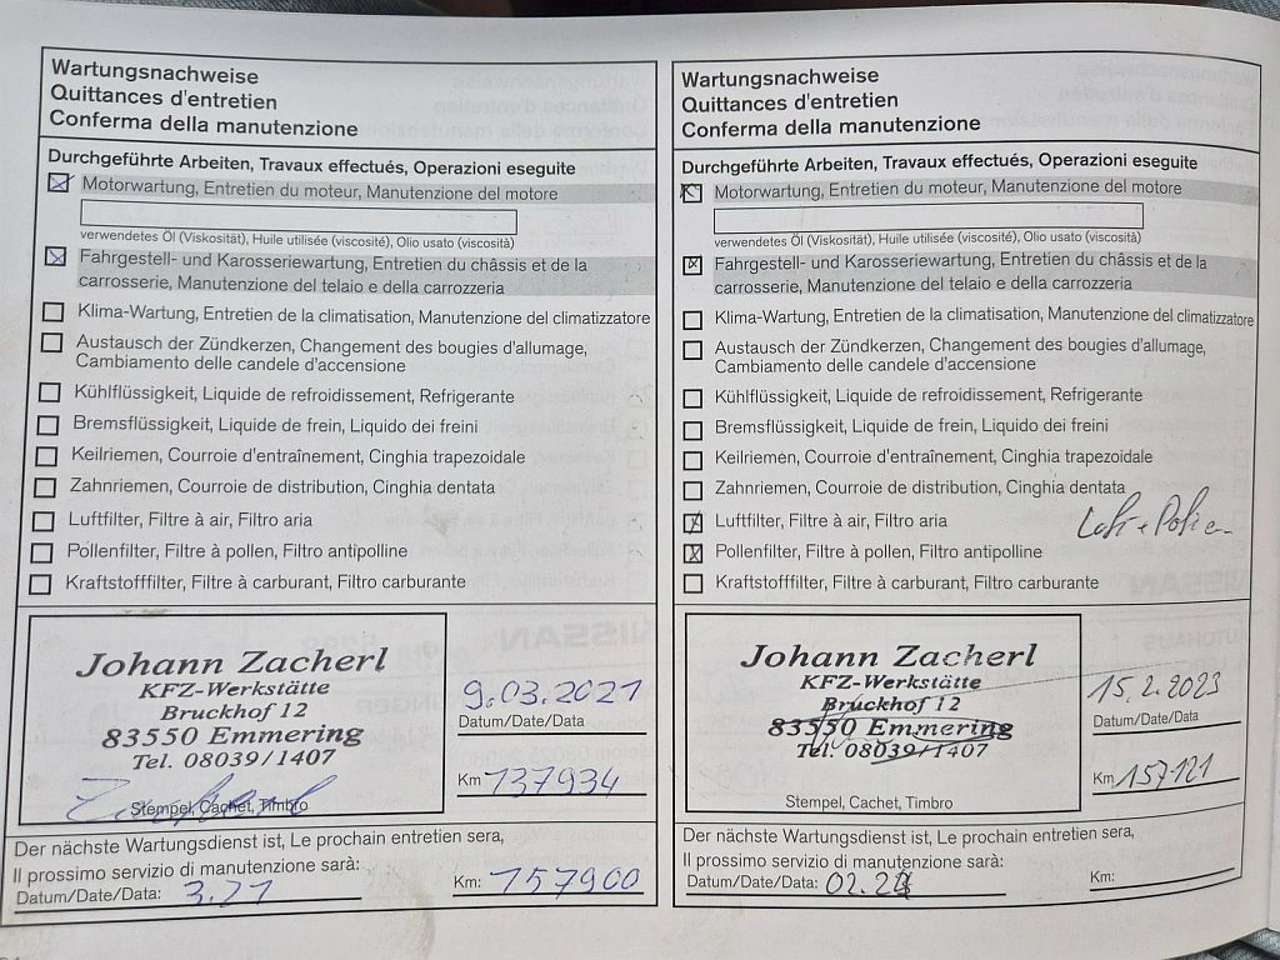 Wartungsnachweise
Quittances d'entretien
Conferma della manutenzione
Durchgeführte Arbeiten, Travaux effectués, Operazioni eseguite
Motorwartung, Entretien du moteur, Manutenzione del motore
verwendetes Öl (Viskosität), Huile utilisée (viscosité), Olio usato (viscosità)
Fahrgestell- und Karosseriewartung, Entretien du châssis et de la
carrosserie, Manutenzione del telaio e della carrozzeria
Klima-Wartung, Entretien de la climatisation, Manutenzione del climatizzatore
Austausch der Zündkerzen, Changement des bougies d'allumage,
Cambiamento delle candele d'accensione
Kühlflüssigkeit, Liquide de refroidissement, Refrigerante
Bremsflüssigkeit, Liquide de frein, Liquido dei freini
Keilriemen, Courroie d'entraînement, Cinghia trapezoidale
Zahnriemen, Courroie de distribution, Cinghia dentata
Luftfilter, Filtre à air, Filtro aria
Pollenfilter, Filtre à pollen, Filtro antipolline
Kraftstofffilter, Filtre à carburant, Filtro carburante
Johann Zacherl
KFZ-Werkstätte
Bruckhof 12
83550 Emmering
Tel. 08039/1407
Stempel, Cachet, Timbro
9.03.2021
Datum/Date/Data
Km 137934
Der nächste Wartungsdienst ist, Le prochain entretien sera,
Il prossimo servizio di manutenzione sarà:
Datum/Date/Data: 3.21
Km: 157900
Wartungsnachweise
Quittances d'entretien
Conferma della manutenzione
Durchgeführte Arbeiten, Travaux effectués, Operazioni eseguite
Motorwartung, Entretien du moteur, Manutenzione del motore
verwendetes Öl (Viskosität), Huile utilisée (viscosité), Olio usato (viscosità)
Fahrgestell- und Karosseriewartung, Entretien du châssis et de la
carrosserie, Manutenzione del telaio e della carrozzeria
Klima-Wartung, Entretien de la climatisation, Manutenzione del climatizzatore
Austausch der Zündkerzen, Changement des bougies d'allumage,
Cambiamento delle candele d'accensione
Kühlflüssigkeit, Liquide de refroidissement, Refrigerante
Bremsflüssigkeit, Liquide de frein, Liquido dei freini
Keilriemen, Courroie d'entraînement, Cinghia trapezoidale
Zahnriemen, Courroie de distribution, Cinghia dentata
Luftfilter, Filtre à air, Filtro aria
Pollenfilter, Filtre à pollen, Filtro antipolline
Kraftstofffilter, Filtre à carburant, Filtro carburante
Johann Zacherl
KFZ-Werkstätte
Bruckhof 12
83550 Emmering
Tel. 08039/1407
Stempel, Cachet, Timbro
15.2.2023
Datum/Date/Data
Km 157121
Der nächste Wartungsdienst ist, Le prochain entretien sera,
Il prossimo servizio di manutenzione sarà:
Datum/Date/Data:
Km: